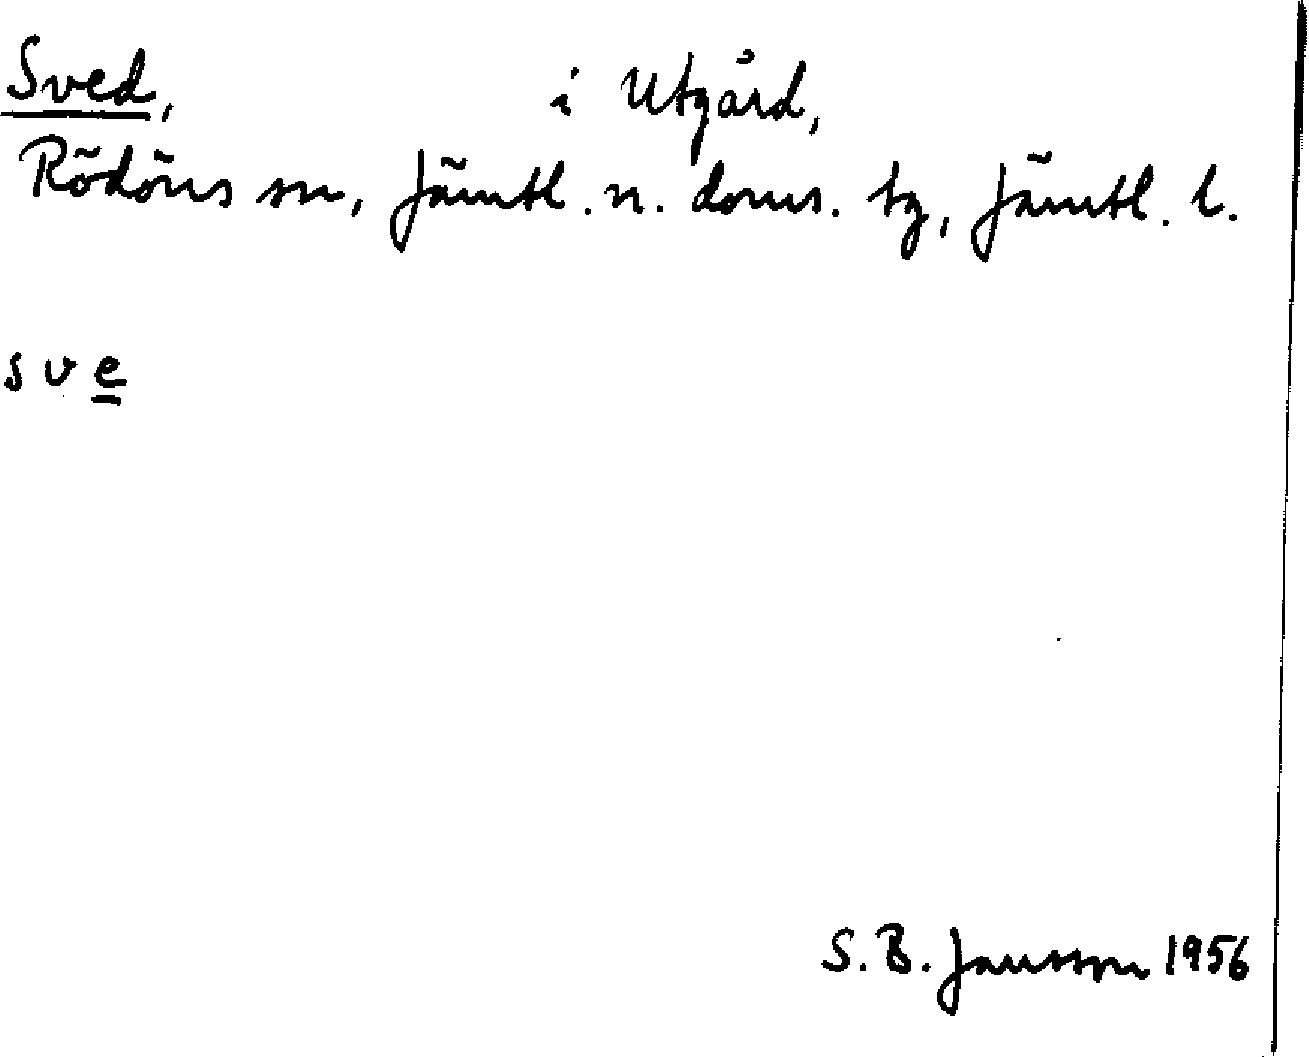 Sved, i Utgård,
Rödöns sn, Jämtl. n. doms. tg, Jämtl. l.
sve
S. B. Jansson 1956